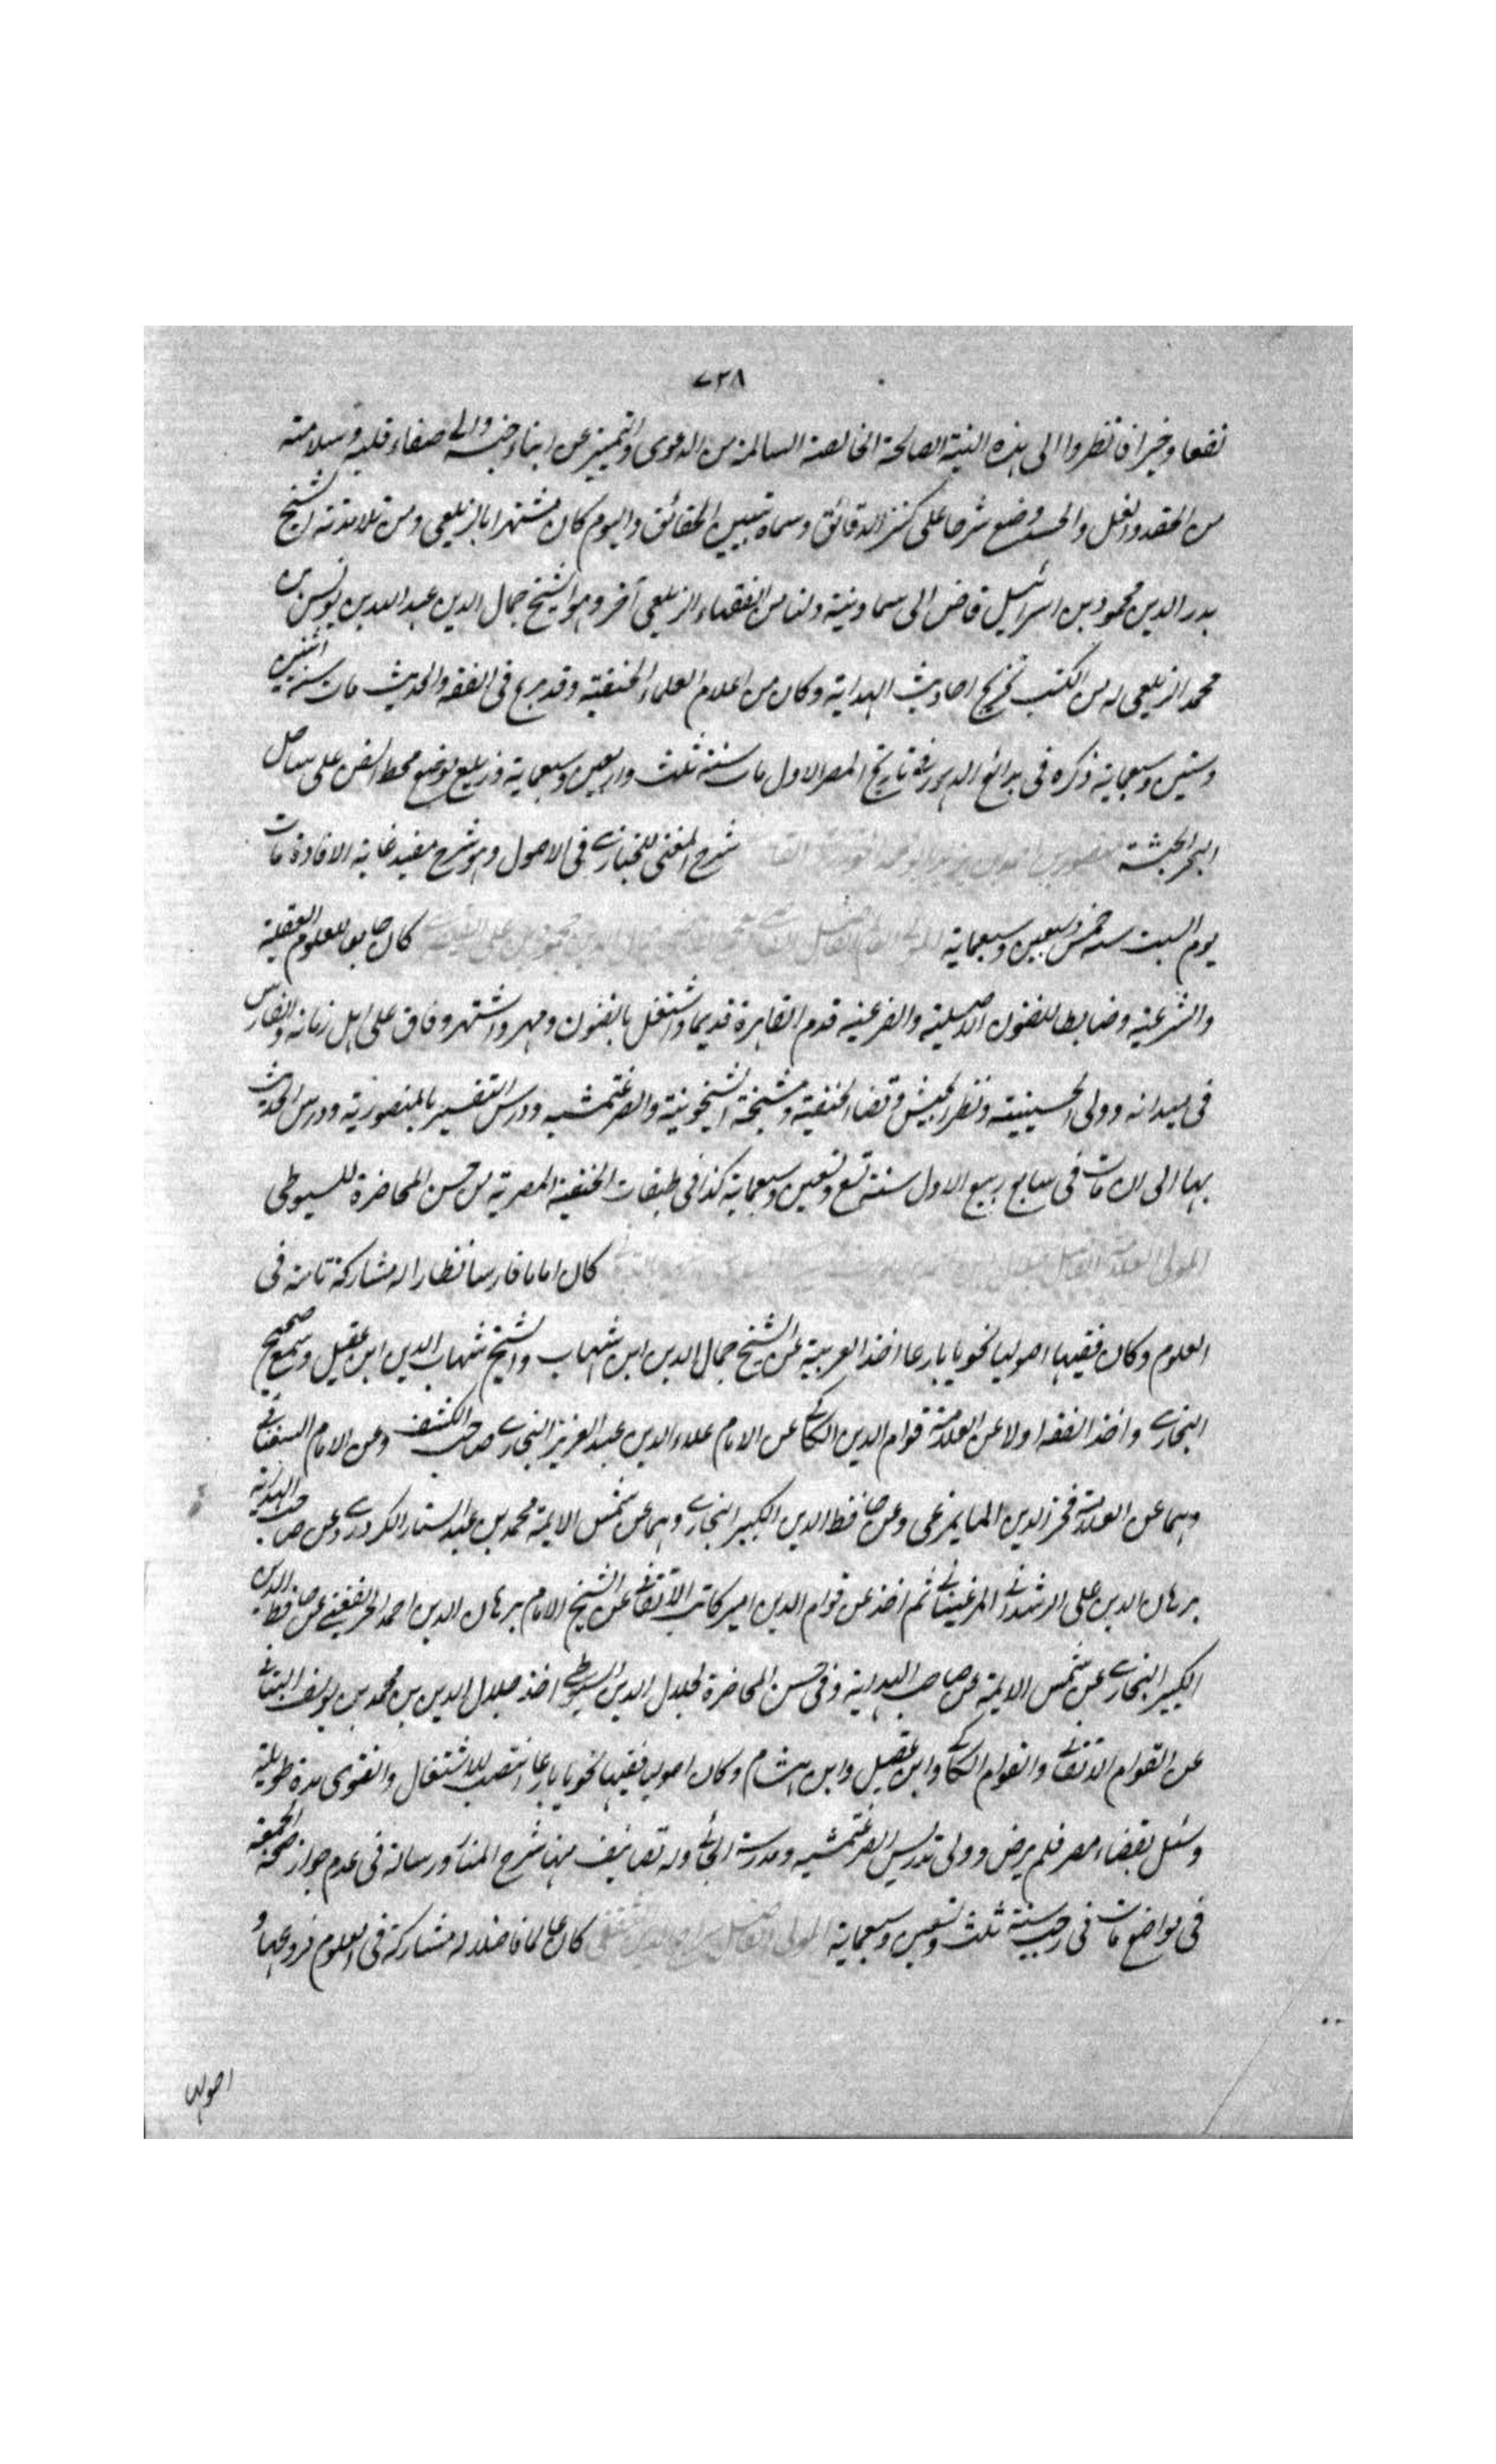 ٧٣٨
نفعا وخيرا فانظروا الى هذه النية الصالحة الخالصة السالمة من الدعوى والتميز عن ابناء جنسه والى صفاء قلبه وسلامته
من الحقد والغل والحسد وضع شرحا على كنز الدقائق وسماه تبيين الحقائق واليوم كان مشتهرا بالزيلعى ومن تلامذته الشيخ
بدر الدين محمود بن اسرائيل قاضى الى سماونية ولنا من الفقهاء الزيلعى آخر وهو الشيخ جمال الدين عبد الله بن يونس بن
محمد الزيلعى له من الكتب تخريج احاديث الهداية وكان من اعلام العلماء الحنفية وقد برع فى الفقه والحديث مات سنة اثنتين
وستين وسبعماية ذكره فى بدائع الدهور فى تاريخ المصر الاول مات سنة ثلث واربعين وسبعماية وزيلع موضع محط السفن على ساحل
البحر الحبشة شرح المغنى للخبازى فى الاصول وهو شرح مفيد غاية الافادة مات
يوم السبت سنه خمس وسبعين وسبعماية كان جامعا للعلوم العقلية
والشرعية وضابطا للفنون الاصلية والفرعية قدم القاهرة قديما واشتغل بالفنون ومهر واشتهر وفاق على اهل زمانه والفارس
فى ميدانه وولى الحسينية ونظر الجيش وقضاء الحنفية ومشيخة الشيخونية والصرغتمشيه ودرس التفسير بالمنصورية ودرس الحديث
بها الى ان مات فى سابع ربيع الاول سنة تسع وتسعين وسبعماية كذا فى طبقات الحنفية المصرية من حسن المحاضرة للسيوطى
كان اماما فارسا نظارا له مشاركة تامة فى
العلوم وكان فقيها اصوليا نحويا بارعا اخذ العربية عن الشيخ جمال الدين ابن شهاب والشيخ شهاب الدين ابن عقيل وسمع صحيح
البخارى واخذ الفقه اولا عن العلامة قوام الدين الكاكى عن الامام علاء الدين عبد العزيز البخارى صاحب الكشف وعن الامام السغناقى
وهما عن العلامة فخر الدين المايمرغى وعن حافظ الدين الكبير البخارى وهما عن شمس الايمة محمد بن عبد الستار الكردرى وعن صاحب الهداية
برهان الدين على الرشدانى المرغينانى ثم اخذ عن قوام الدين امير كاتب الاتقانى عن الشيخ الامام برهان الدين احمد الخريفغنى عن حافظ الدين
الكبير البخارى عن شمس الايمة عن صاحب الهداية وفى حسن المحاضرة لجلال الدين السيوطى اخذ جلال الدين بن محمد بن يوسف التبانى
عن القوام الاتقانى والقوام الكاكى وابن عقيل وابن هشام وكان اصوليا فقيها نحويا بارعا انتصب للاشتغال والفتوى مدة طويلة
وسئل بقضاء مصر فلم يرض وولى تدريس الصرغتمشيه ومدرسة الجائى وله تصانيف منها شرح المنار ورسالة فى عدم جواز صحة الجمعة
فى مواضع مات فى رجب سنة ثلث وتسعين وسبعماية كان عالما فاضلا له مشاركة فى العلوم فروعها و
اصولها